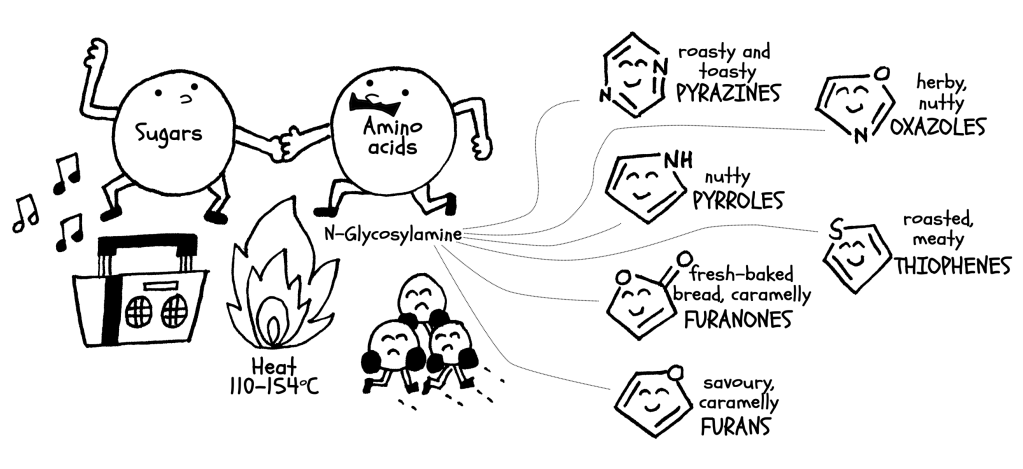 Sugars
Amino
acids
N-Glycosylamine
Heat
110–154°C
roasty and
toasty
PYRAZINES
N
N
herby,
nutty
OXAZOLES
O
N
nutty
PYRROLES
NH
roasted,
meaty
THIOPHENES
S
fresh-baked
bread, caramelly
FURANONES
O
O
savoury,
caramelly
FURANS
O